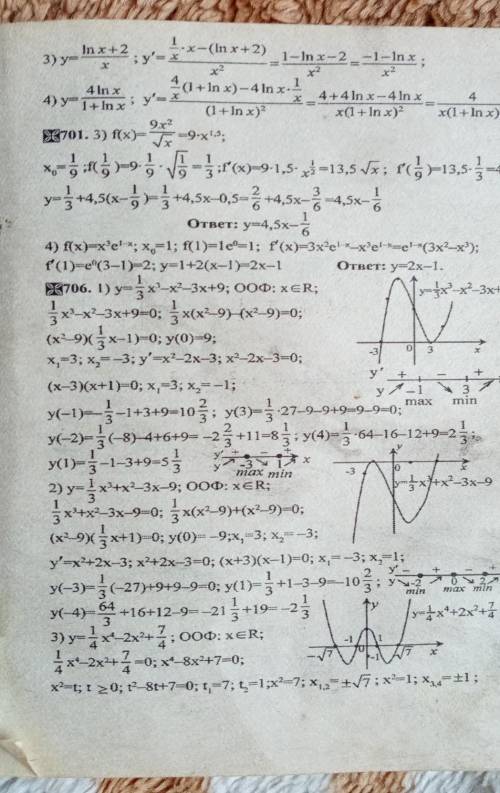 3) y=(ln x+2)/x ; y′=(1/x·x−(ln x+2))/x²=(1−ln x−2)/x²=(−1−ln x)/x² ;
4) y=4 ln x/(1+ln x) ; y′=(4/x(1+ln x)−4 ln x·1/x)/(1+ln x)²=(4+4 ln x−4 ln x)/(x(1+ln x)²)=4/(x(1+ln x)
701. 3) f(x)=9x²/√x=9·x^1,5;
x₀=1/9 ;f(1/9)=9·1/9·√(1/9)=1/3 ;f′(x)=9·1,5·x^(1/2)=13,5 √x ; f′(1/9)=13,5·1/3=4
y=1/3+4,5(x−1/9)=1/3+4,5x−0,5=2/6+4,5x−3/6=4,5x−1/6
Ответ: y=4,5x−1/6
4) f(x)=x³e^(1−x); x₀=1; f(1)=1e⁰=1; f′(x)=3x²e^(1−x)−x³e^(1−x)=e^(1−x)(3x²−x³);
f′(1)=e⁰(3−1)=2; y=1+2(x−1)=2x−1 Ответ: y=2x−1.
706. 1) y=1/3 x³−x²−3x+9; ООФ: x∈R;
y=1/3x³−x²−3x+
1/3 x³−x²−3x+9=0; 1/3 x(x²−9)−(x²−9)=0;
(x²−9)(1/3 x−1)=0; y(0)=9;
−3 0 3 x
x₁=3; x₂= −3; y′=x²−2x−3; x²−2x−3=0;
y′ + − +
(x−3)(x+1)=0; x₁=3; x₂= −1;
y −1 3
max min
y(−1)=−1/3−1+3+9=10 2/3 ; y(3)=1/3·27−9−9+9=9−9=0;
y(−2)=1/3(−8)−4+6+9= −2 2/3+11=8 1/3 ; y(4)=1/3·64−16−12+9=2 1/3 ;
y(1)=1/3−1−3+9=5 1/3
y′ + − + x
y −3 1
max min
y
−3 0 3 x
y=1/3 x³+x²−3x−9
2) y=1/3 x³+x²−3x−9; ООФ: x∈R;
1/3 x³+x²−3x−9=0; 1/3 x(x²−9)+(x²−9)=0;
(x²−9)(1/3 x+1)=0; y(0)= −9;x₁=3; x₂= −3;
y′=x²+2x−3; x²+2x−3=0; (x+3)(x−1)=0; x₁= −3; x₂=1;
y(−3)=1/3(−27)+9+9−9=0; y(1)=1/3+1−3−9=−10 2/3 ;
y′ − + − +
y −2 0 2
min max min
y(−4)=64/3+16+12−9= −21 1/3+19= −2 1/3
y=1/4x⁴+2x²+7/4
3) y=1/4 x⁴−2x²+7/4 ; ООФ: x∈R;
y
−√7 −1 0 1 −1 √7 x
1/4 x⁴−2x²+7/4=0; x⁴−8x²+7=0;
x²=t; t ≥0; t²−8t+7=0; t₁=7; t₂=1;x²=7; x₁,₂=±√7 ; x²=1; x₃,₄=±1 ;